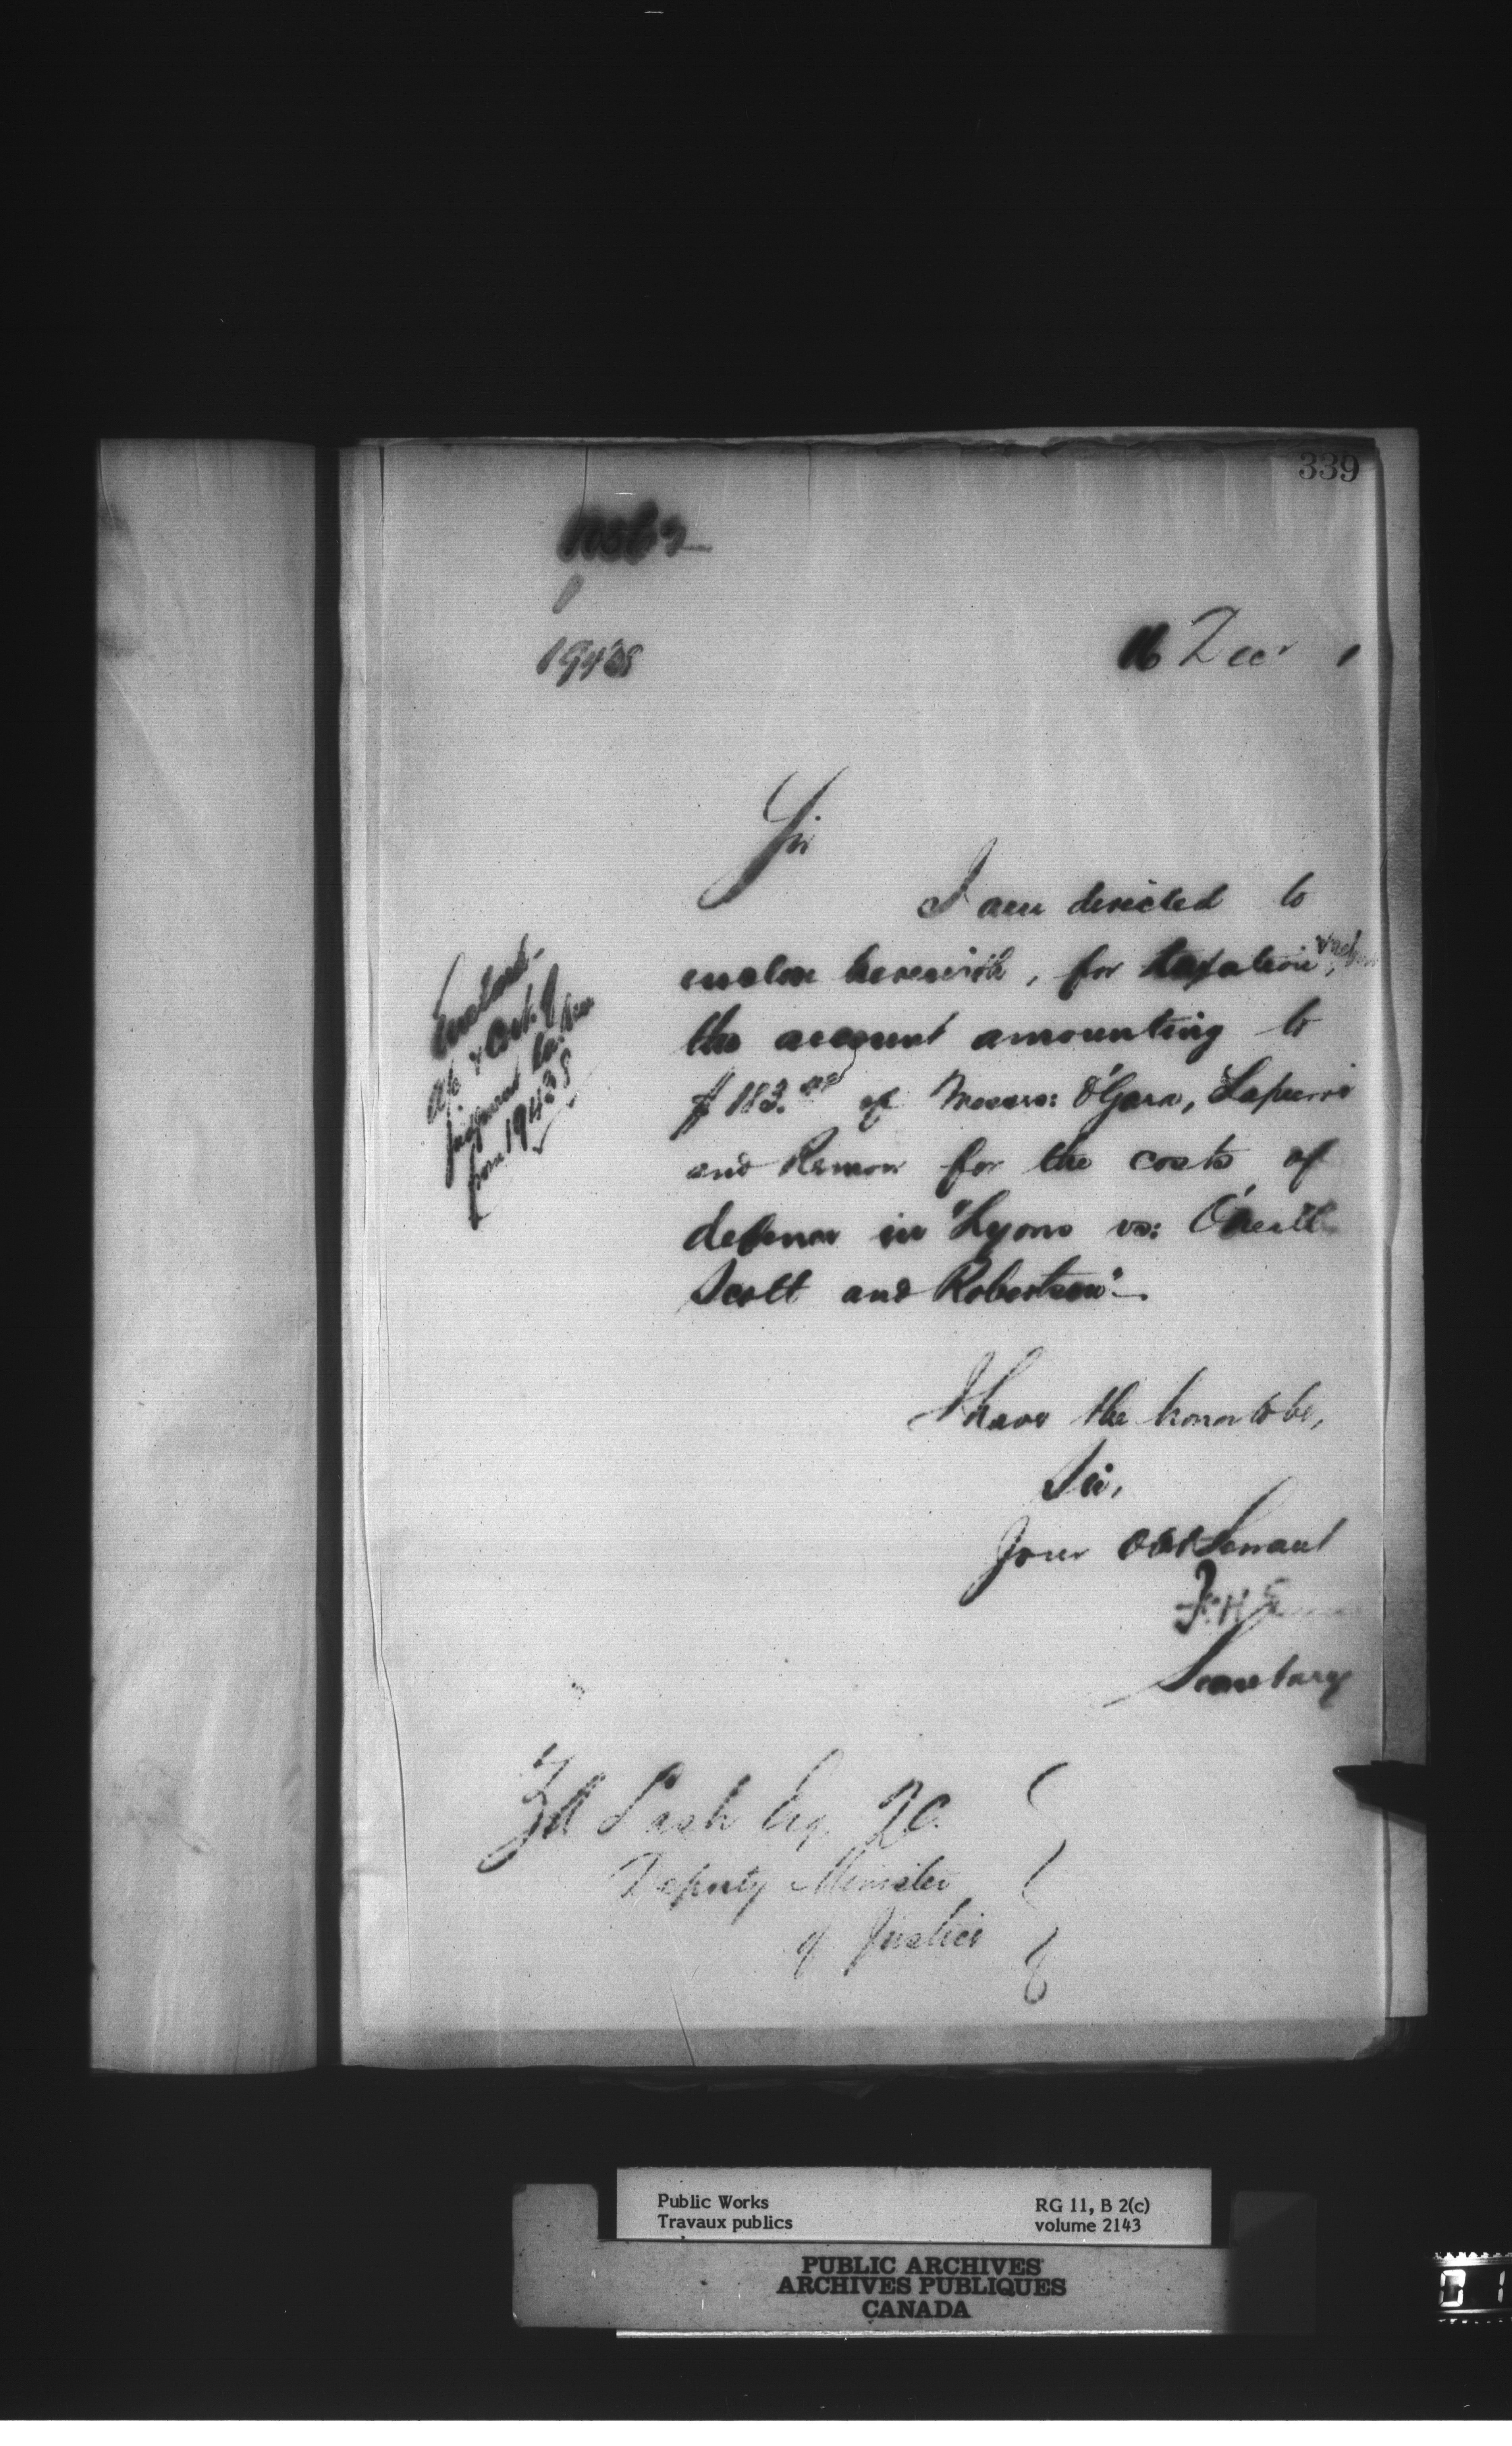 339
10569
1
19438
16 Decr 1
Sir
I am directed to
enclose herewith, for taxation,
the account amounting to
$183.00 of Messrs: O'Gara, Lapierre
and Remon for the costs of
defence in "Lyons vs: O'Neill
Scott and Robertson".
Enclosed
a/c & Cert. of
Judgment
from 19438
I have the honor to be,
Sir,
Your Obt Servant
F. H. E
Secretary
Z A Lash Esq. QC.
Deputy Minister
of Justice
Public Works
Travaux publics
RG 11, B 2(c)
volume 2143
PUBLIC ARCHIVES
ARCHIVES PUBLIQUES
CANADA
01